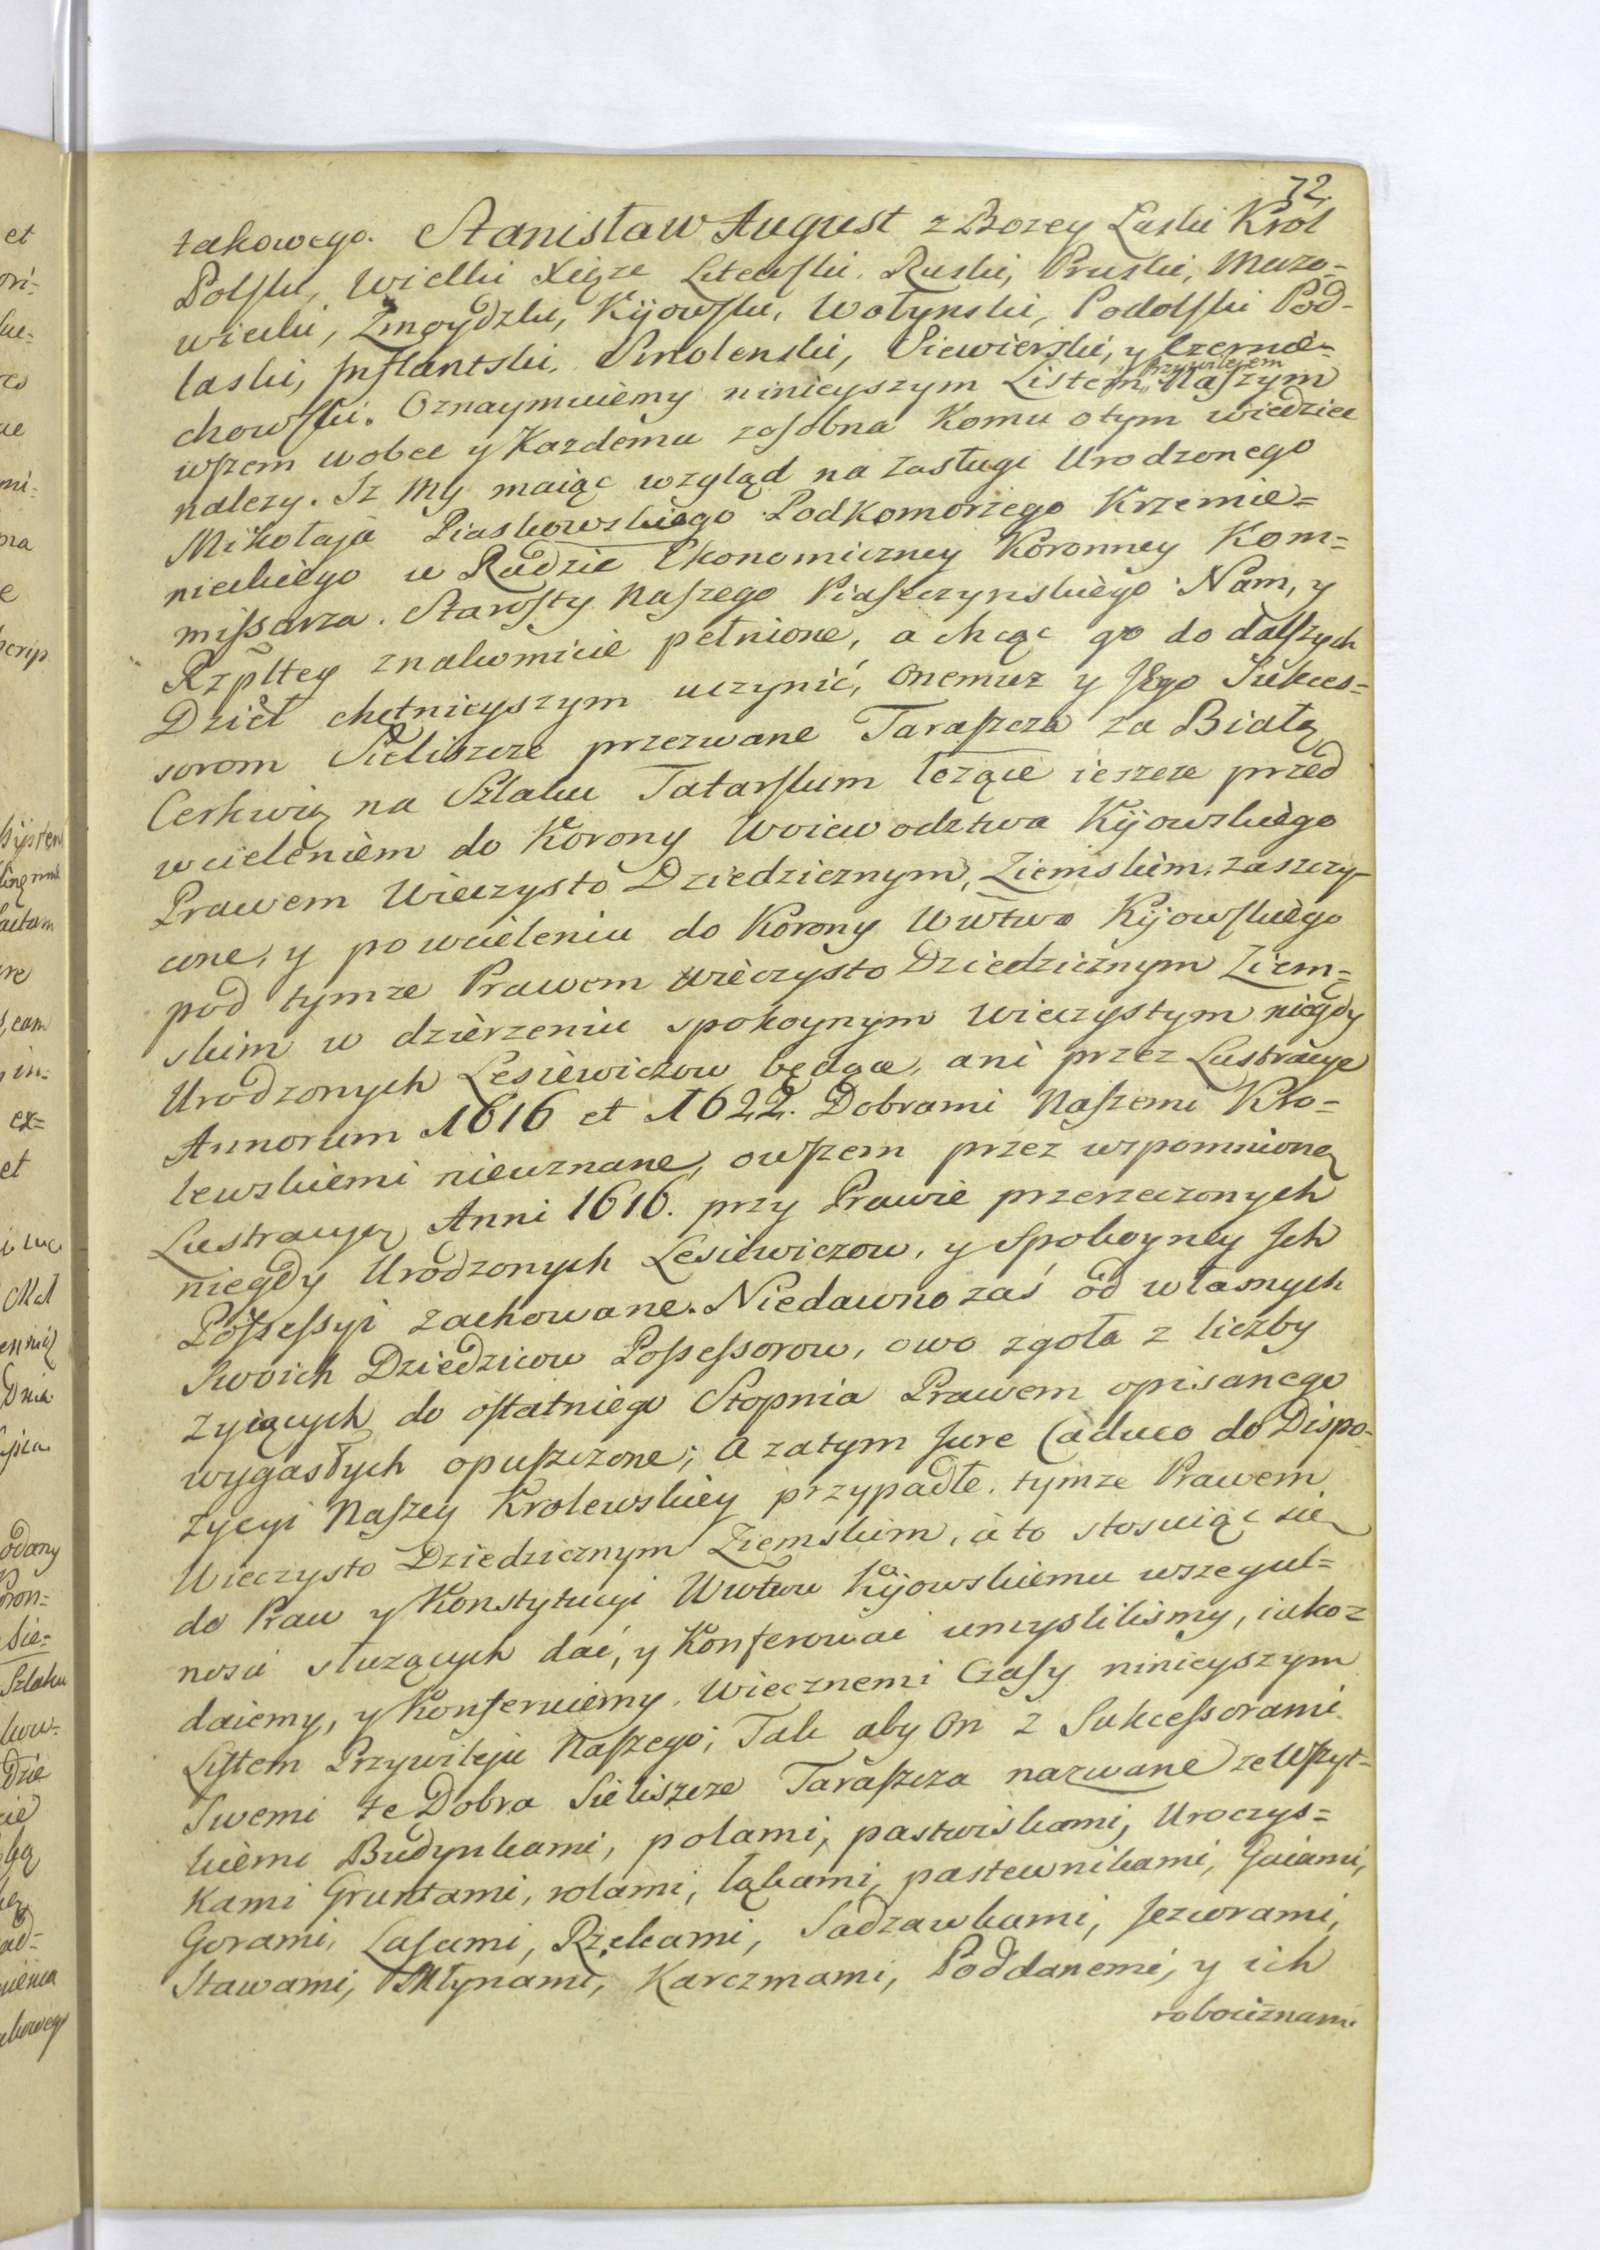 72.
takowego. Stanisław August z Bozey Łaski Krol
Polski, Wielki Xiąze Litewski, Ruski, Pruski, Mazo-
wiecki, Zmoydzki, Kijowski, Wołynski, Podolski Pod-
laski, Inflantski, Smolenski, Siewierski, y Czernie-
chowski. Oznaymuiemy ninieyszym Listem Przywilejem Naszym
wszem wobec y Kazdemu zosobna Komu otym wiedziec
nalezy. Iz My maiąc wzgląd na zasługi Urodzonego
Mikołaja Piaskowskiego Podkomorzego Krzemie=
nieckiego w Radzie Ekonomiczney Koronney Kom=
missarza. Starosty Naszego Piaseczynskiego Nam, y
Rzpltey znakomicie pełnione, a chcąc go do dalszych
Dzieł chętnieyszym uczynić, onemuz y Jego Sukces=
sorom Sieliszcze przezwane Taraszcza za Białą
Cerkwią na Szlaku Tatarskim lezące ieszcze przed
wcieleniem do Korony Woiewodztwa Kijowskiego
Prawem Wieczysto Dziedzicznym, Ziemskim zaszczy-
cone, y po wcieleniu do Korony Wwtwa Kijowskiego
pod tymze Prawem wieczysto Dziedzicznym Ziem=
skim w dzierzeniu spokoynym wieczystym niegdy
Urodzonych Lesiewiczow będące, ani przez Lustracye
Annorum 1616 et 1622. Dobrami Naszemi Kro=
lewskiemi nieuznane, owszem przez wspomnioną
Lustracyą Anni 1616. przy Prawie przerzeczonych
niegdy Urodzonych Lesiewiczow, y Spokoyney Ich
Possessyi zachowane. Niedawno zaś od własnych
Swoich Dziedzicow Possessorow, owo zgoła z liczby
Zyiących do ostatniego Stopnia Prawem opisanego
wygasłych opuszczone; A zatym Jure Caduco do Dispo-
zycyi Naszey Krolewskiey przypadłe. tymze Prawem
Wieczysto Dziedzicznym Ziemskim, a to stosuiąc się
do Praw y Konstytucyi Wwtwu Kijowskiemu wszegul=
nosci słuzących dać, y Konferowai umyslilismy, iakoz
daiemy, y Konferuiemy. Wiecznemi Czasy ninieyszym
Listem Przywileju Naszego; Tak aby On z Sukcessorami
Swemi te Dobra Sieliszcze Taraszcza nazwane ze Wszyt=
kiemi Budynkami, polami, pastwiskami, Uroczys=
Kami Gruntami, rolami, łąkami, pastewnikami, Gaiami,
Gorami, Lasami, Rzekami, Sadzawkami, Jeziorami,
Stawami, Młynami, Karczmami, Poddanemi, y ich
robociznami